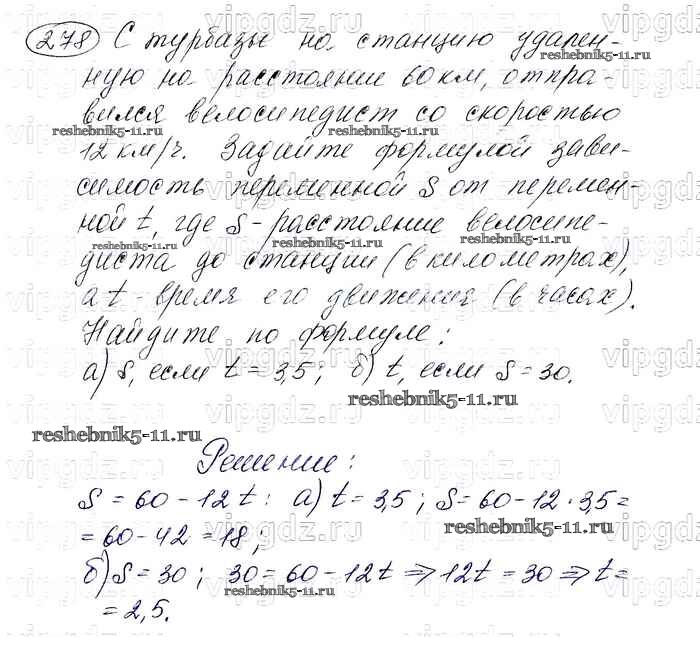 278 С турбазы на станцию удален-
ную на расстояние 60 км, отпра-
вился велосипедист со скоростью
12 км/ч. Задайте формулой зави-
симость переменной S от перемен-
ной t, где S - расстояние велосипе-
диста до станции (в километрах),
а t - время его движения (в часах).
Найдите по формуле:
а) S, если t = 3,5; б) t, если S = 30.
reshebnik5-11.ru
Решение:
S = 60 - 12t: а) t = 3,5; S = 60 - 12 · 3,5 =
= 60 - 42 = 18;
б) S = 30; 30 = 60 - 12t ⇒ 12t = 30 ⇒ t =
= 2,5.